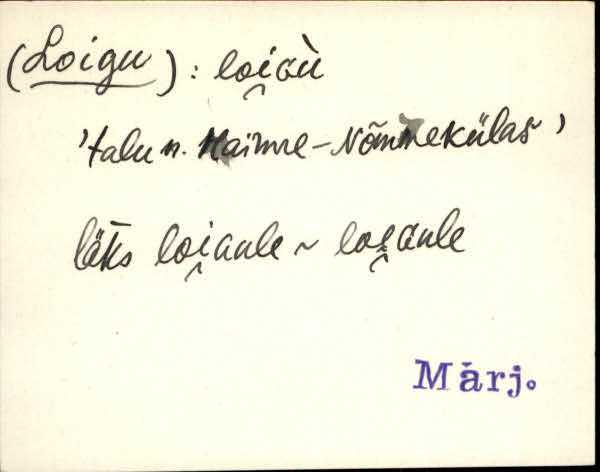 (Loigu) : loi̯ɢù
'talu n. Haimre-Nõmmekülas'
läks loi̯ɢule ~ loe̯ɢule
Märj.